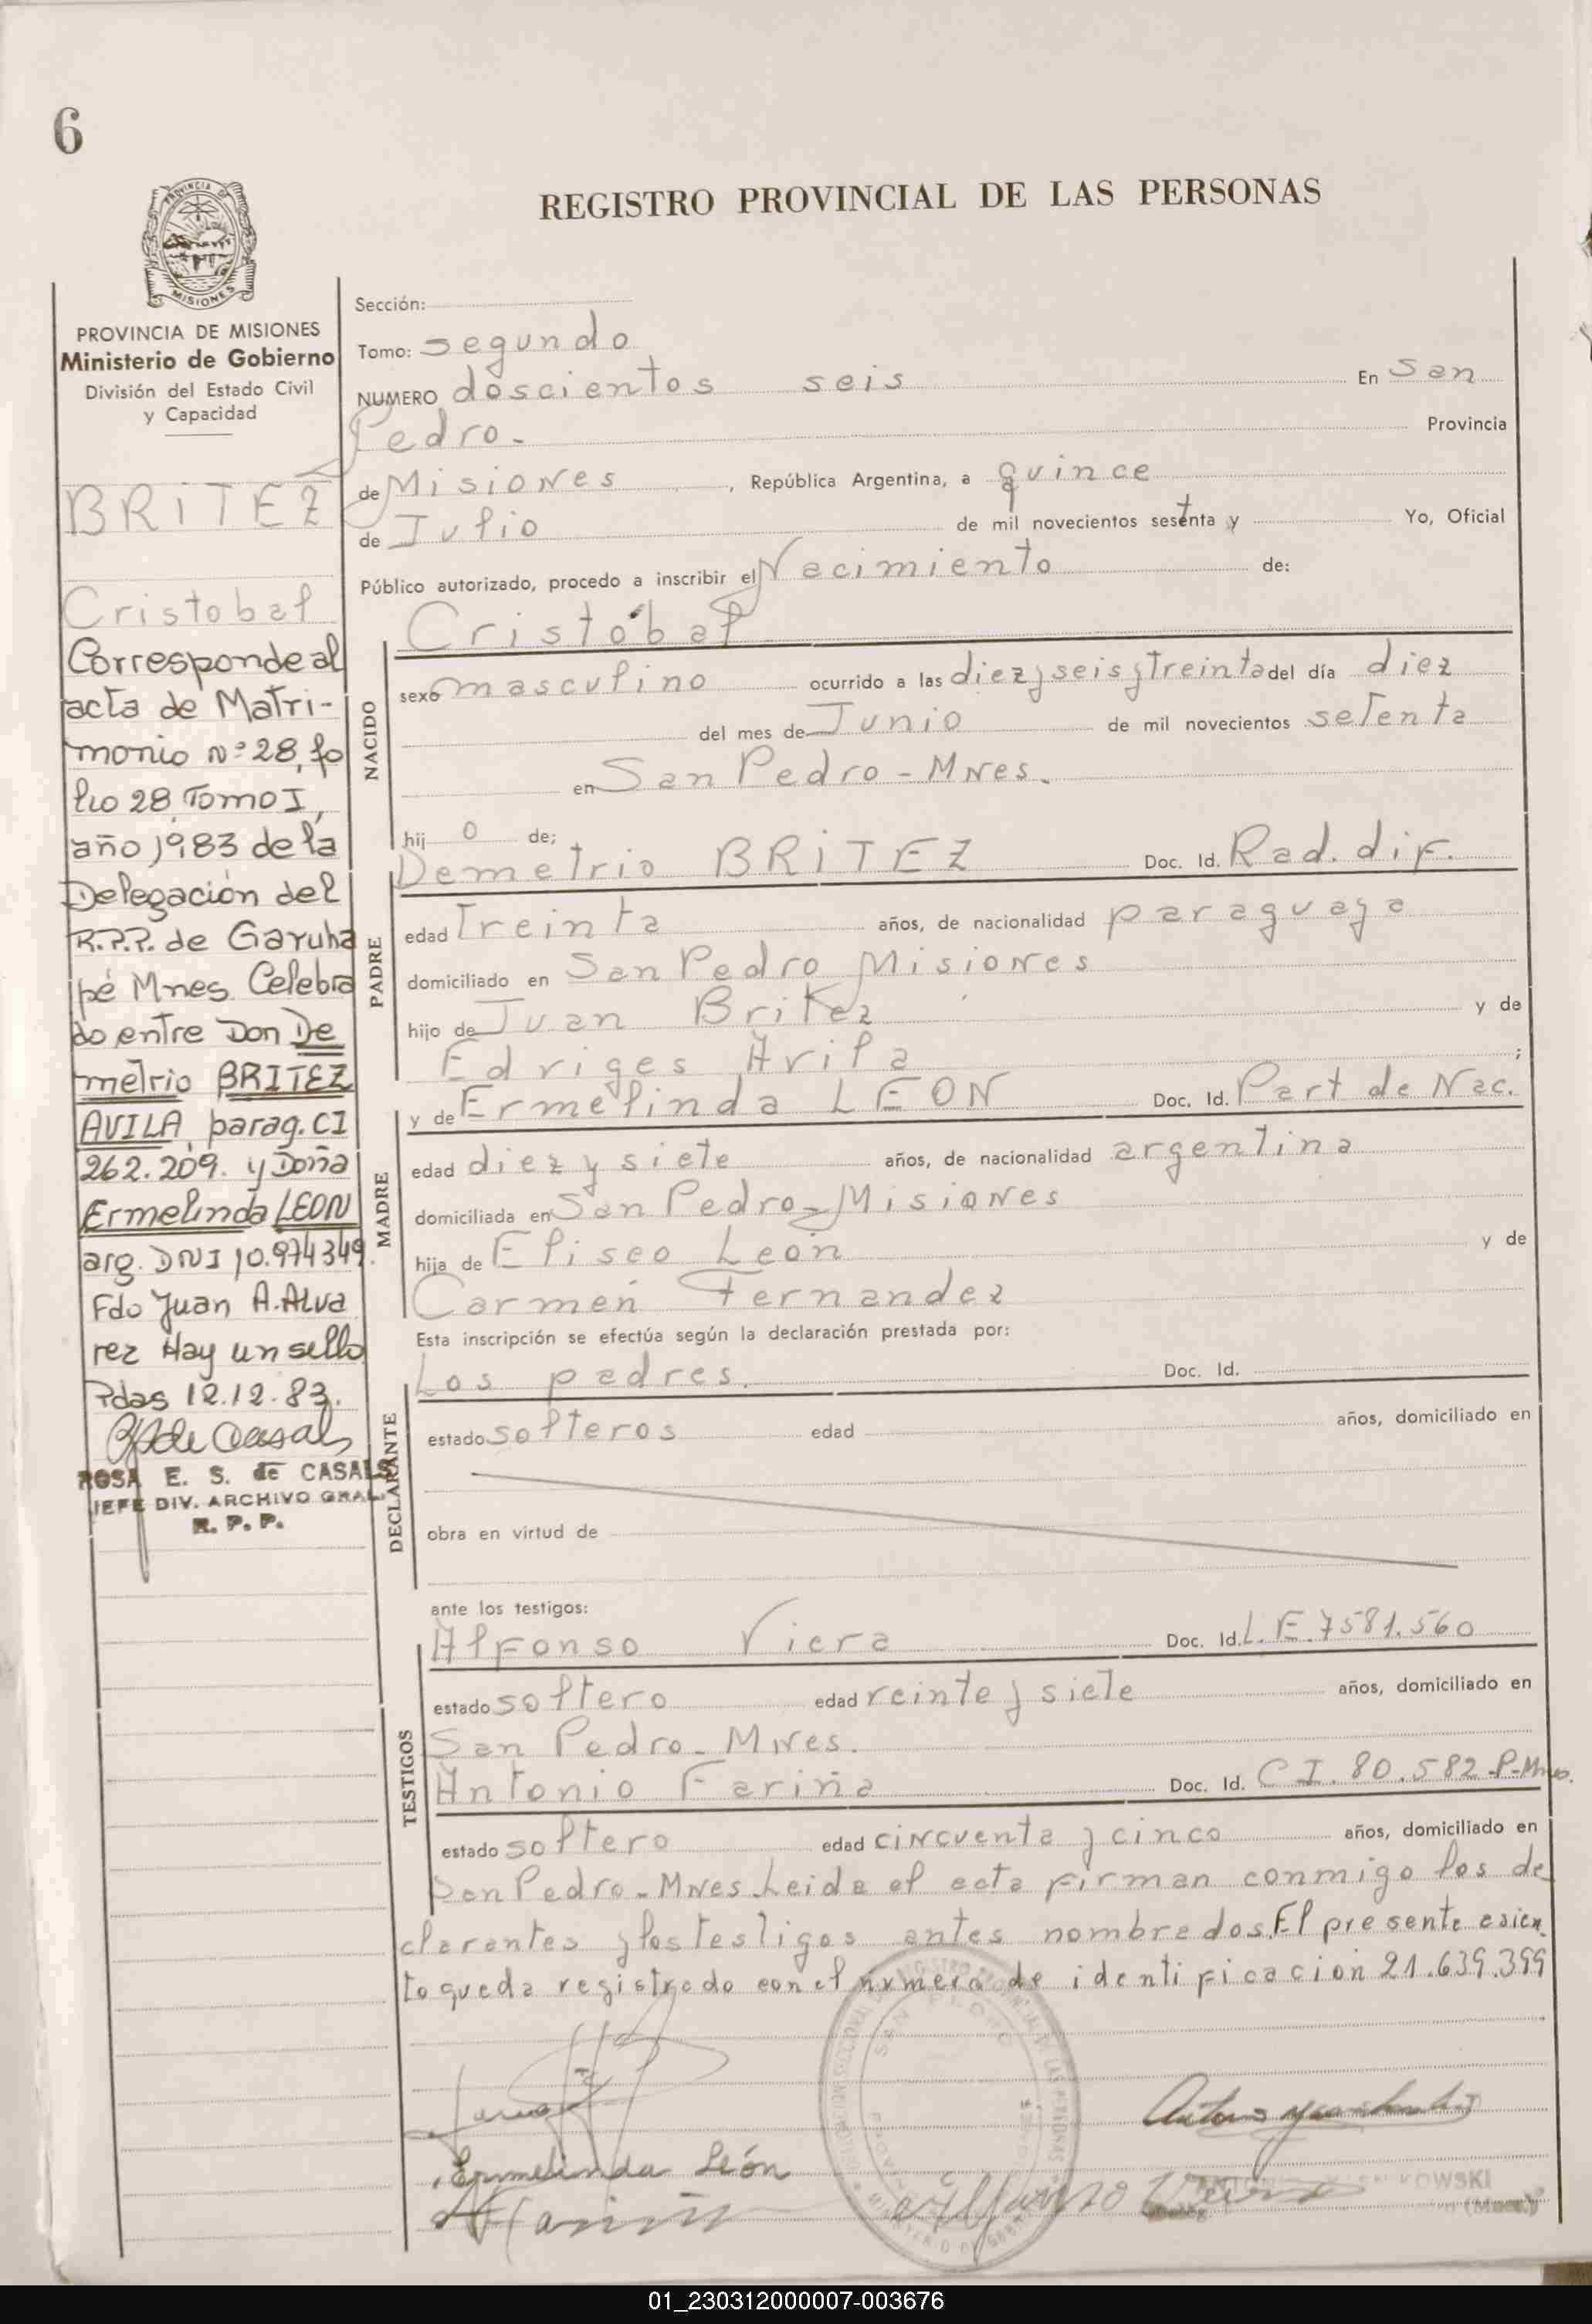 6
REGISTRO PROVINCIAL DE LAS PERSONAS
PROVINCIA DE MISIONES
Ministerio de Gobierno
División del Estado Civil
y Capacidad
BRITEZ
Cristobal
Corresponde al
acta de Matri-
monio Nº 28, fo
lio 28 Tomo I,
año 1983 de la
Delegación del
R.P.P. de Garuha
pé Mnes Celebra
do entre Don De
metrio BRITEZ
AVILA, parag. CI
262.209. y Doña
Ermelinda LEON
arg. DNI 10.974349.
Fdo Juan A. Alva
rez Hay un sello
Pdas 12.12.83.
ROSA E. S. de CASALS
JEFE DIV. ARCHIVO GRAL.
R. P. P.
Sección:
Tomo: segundo
NUMERO doscientos seis En San
Pedro.- Provincia
de Misiones, República Argentina, a quince
de Julio de mil novecientos sestenta y Yo, Oficial
Público autorizado, procedo a inscribir el Nacimiento de:
Cristóbal
NACIDO
sexo masculino ocurrido a las diez y seis y treinta del día diez
del mes de Junio de mil novecientos setenta
en San Pedro - MNes.
hijo de;
Demetrio BRITEZ Doc. Id. Rad. dif.
PADRE
edad treinta años, de nacionalidad paraguaya
domiciliado en San Pedro Misiones
hijo de Juan Britez y de
Edriges Avila ;
y de Ermelinda LEON Doc. Id. Part de Nac.
MADRE
edad diez y siete años, de nacionalidad argentina
domiciliada en San Pedro - Misiones
hija de Eliseo León y de
Carmen Fernandez
Esta inscripción se efectúa según la declaración prestada por:
Los padres. Doc. Id.
DECLARANTE
estado solteros edad años, domiciliado en
obra en virtud de
ante los testigos:
TESTIGOS
Alfonso Viera Doc. Id. L. E. 7581.560
estado soltero edad veinte y siete años, domiciliado en
San Pedro - MNes.
Antonio Fariña Doc. Id. CI. 80.582-P-Mnes.
estado soltero edad cincuenta y cinco años, domiciliado en
San Pedro - MNes Leida el acta firman conmigo los de
clarantes y los testigos antes nombrados. El presente asien
to queda registrado con el número de identificación 21.639.399
Ermelinda León
KOWSKI
(Mnes.)
01_230312000007-003676